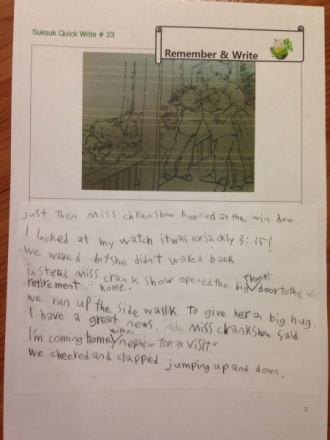 Suksuk Quick Write # 23
Remember & Write
just then Miss chranshow knoked at the win dow.
I looked at my watch it was exsackly 3:15!
we waved but she didn't waved back
insters Miss crank show opened the big front door to the
retirement home.
we ran up the side wallk to give her a big hug.
I have a great news. Miss crankshow said
I'm coming home with my nephew for a visit.
we cheered and clapped jumping up and down.
2